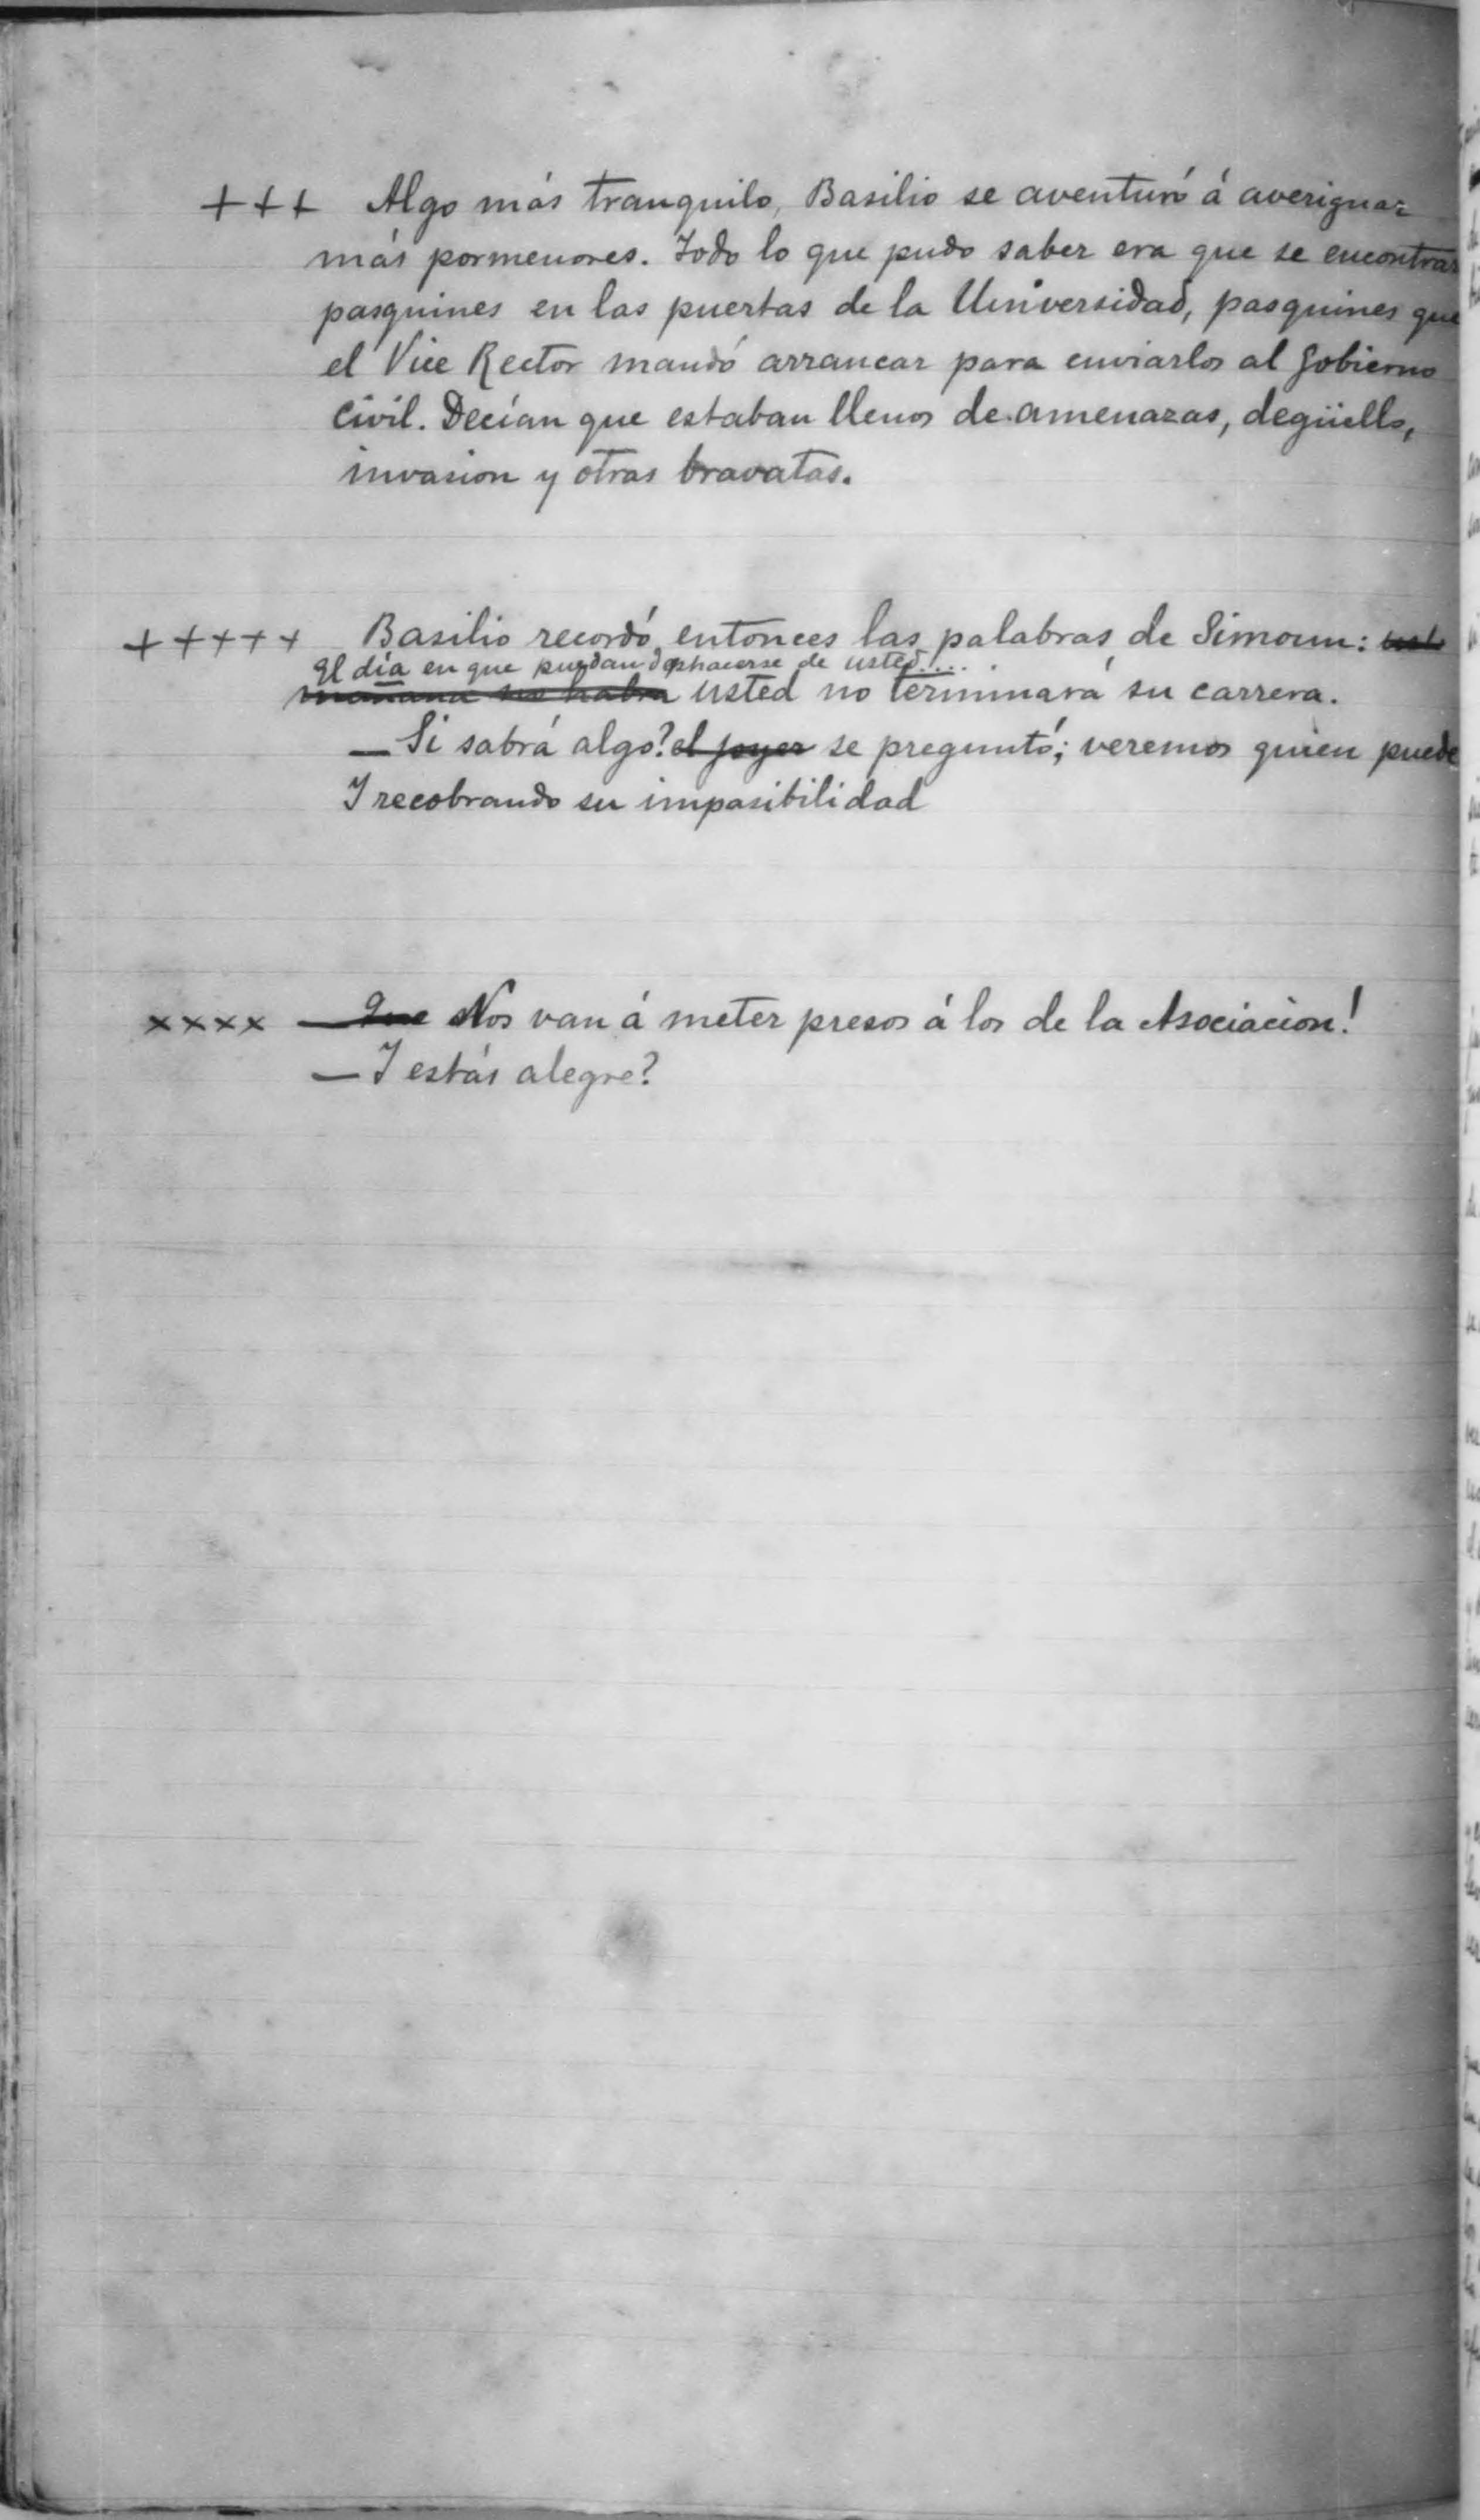 +++ Algo más tranquilo, Basilio se aventuró á averiguar
más pormenores. Todo lo que pudo saber era que se encontrar
pasquines en las puertas de la Universidad, pasquines que
el Vice Rector mandó arrancar para enviarlos al Gobierno
Civil. Decían que estaban llenos de amenazas, degüello,
invasion y otras bravatas.
+++++ Basilio recordó entonces las palabras de Simoun:
El día en que puedan deshacerse de usted....
mañana no habra usted no terminará su carrera.
— Si sabrá algo? el joyer se preguntó; veremos quien puede
Y recobrando su impasibilidad
xxxx — Que Nos van á meter presos á los de la Asociacion!
— Y estás alegre?